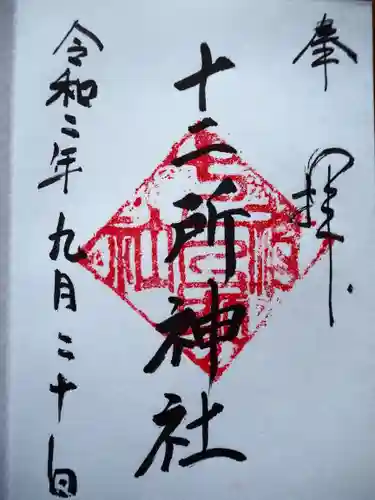 奉拝
十二所神社
令和二年九月二十日